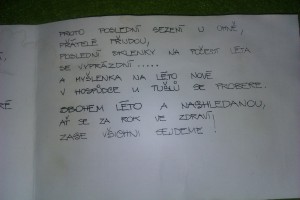 PROTO POSLEDNÍ SEZENÍ U OHNĚ,
PŘÁTELÉ PŘIJDOU,
POSLEDNÍ SKLENKY NA POČEST LÉTA
SE VYPRÁZDNÍ .....
A MYŠLENKA NA LÉTO NOVÉ
V HOSPŮDCE U TUŠLŮ SE PROBERE.
SBOHEM LÉTO A NASHLEDANOU,
AŤ SE ZA ROK VE ZDRAVÍ
ZASE VŠICHNI SEJDEME !